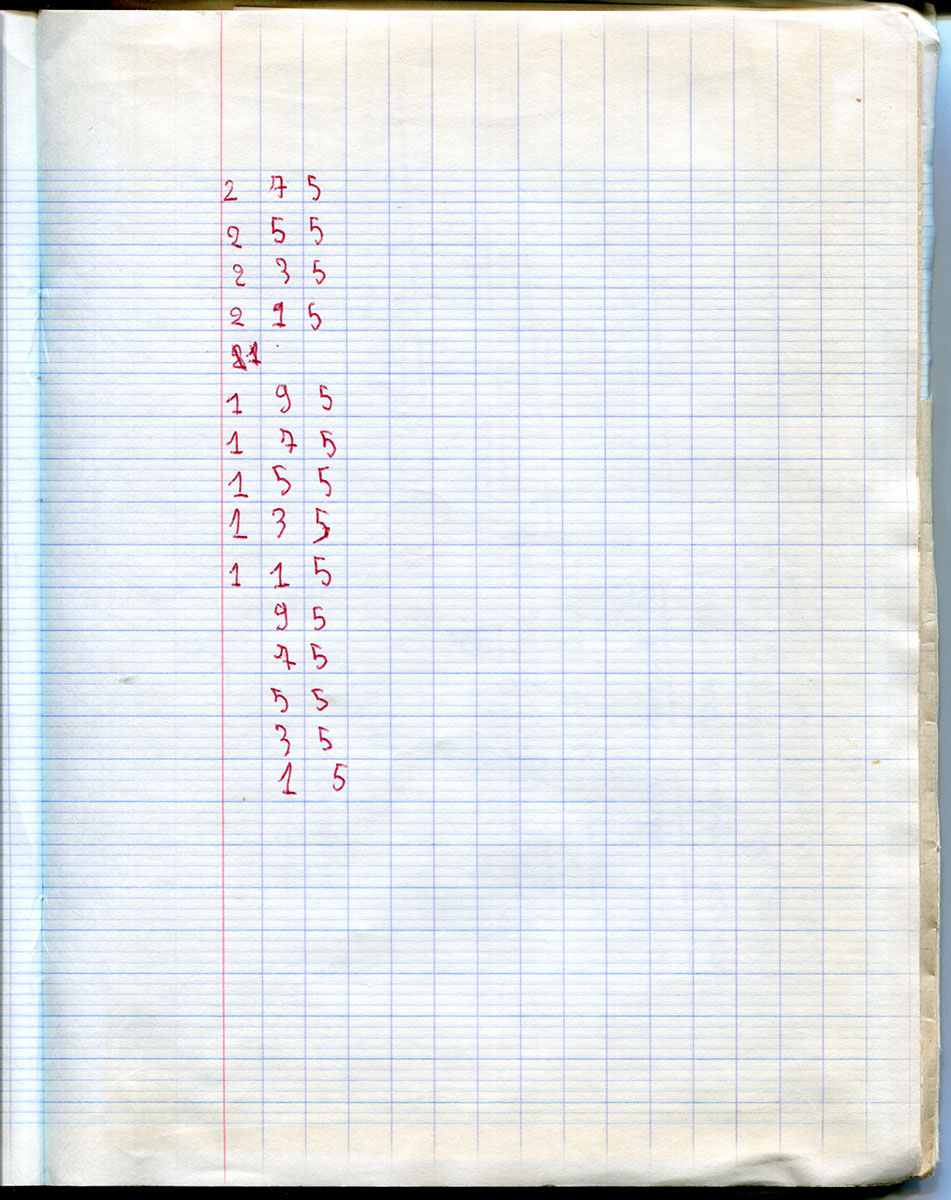 2 7 5
2 5 5
2 3 5
2 1 5
1 9 5
1 7 5
1 5 5
1 3 5
1 1 5
9 5
7 5
5 5
3 5
1 5